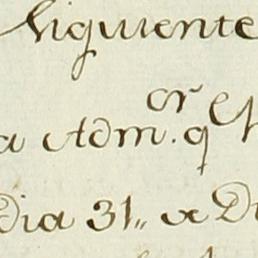 Siguiente
a Adm.or q e
Dia 31,, de D